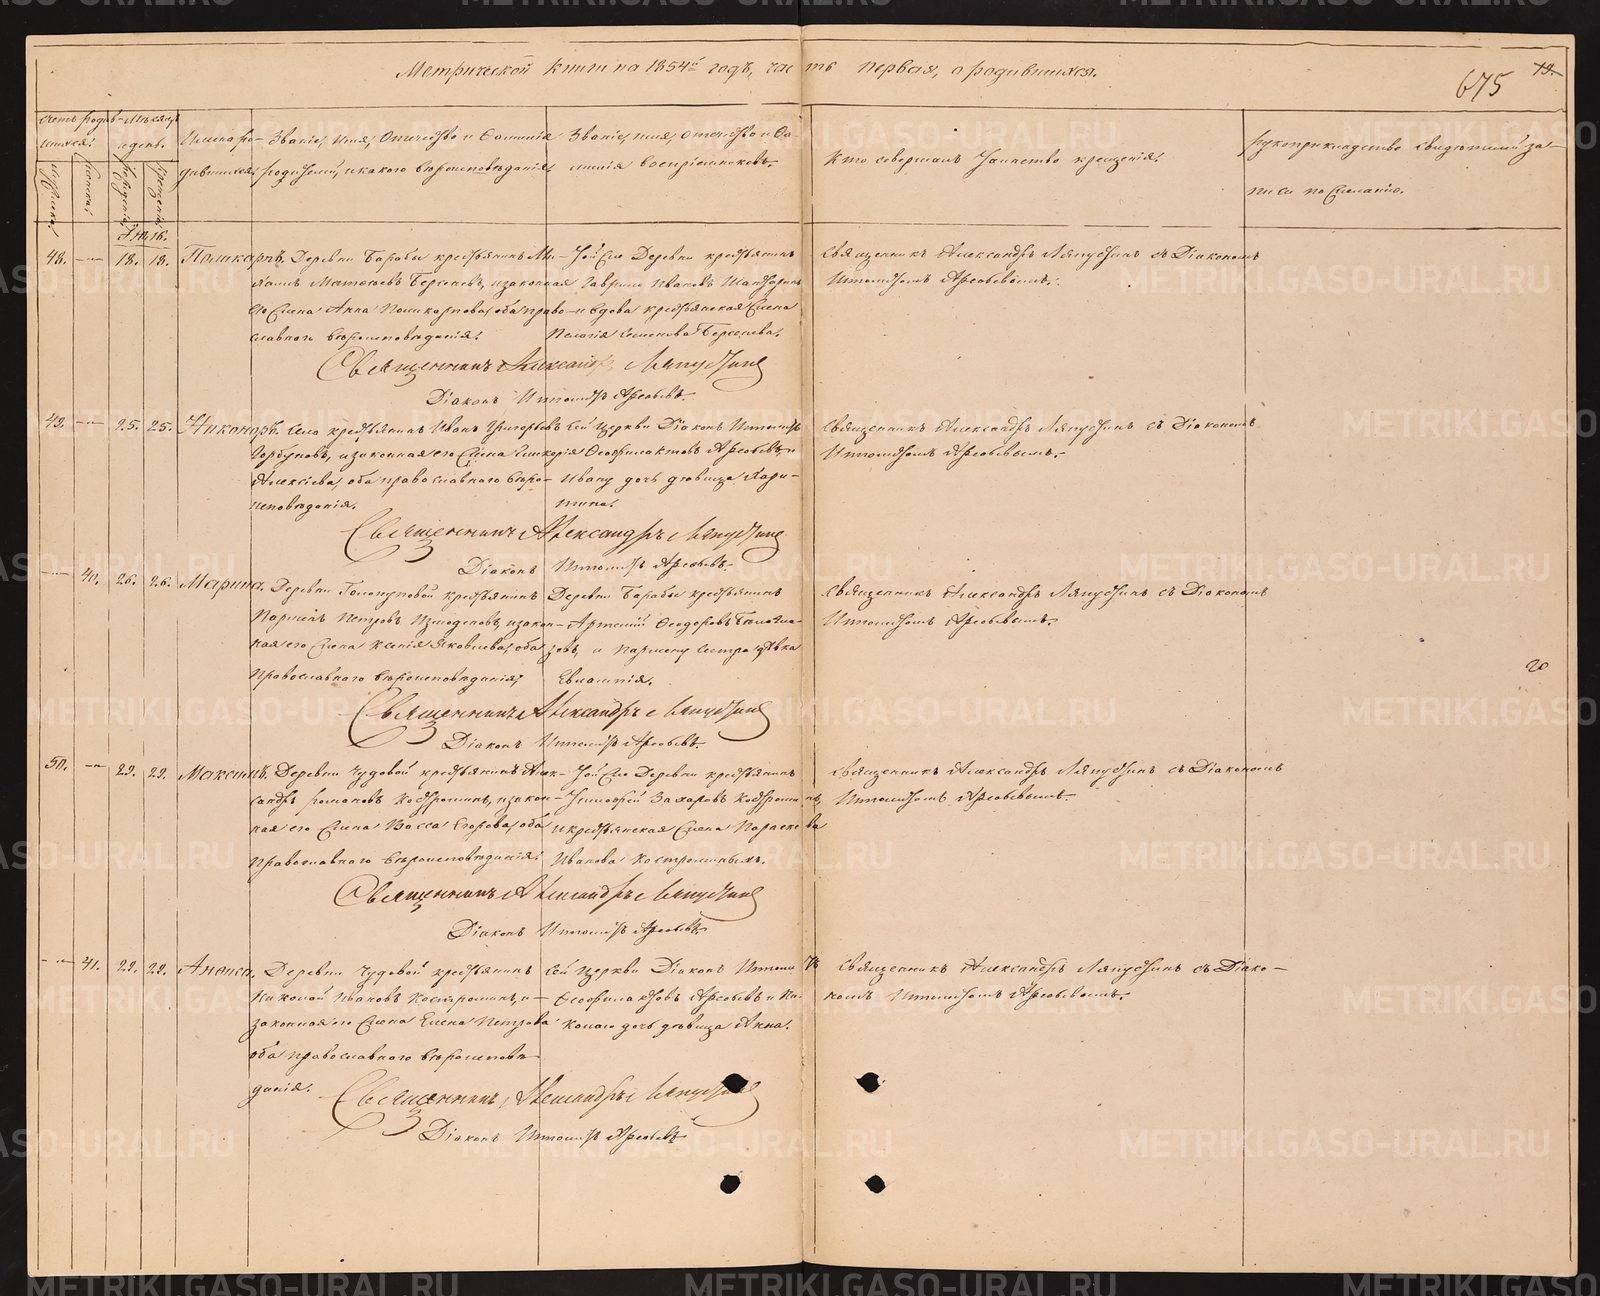 Метрической книги на 1854й годъ, часть первая, о родившихся.
675
19.
Счетъ родив-
шихся.
Мѣсяцъ
и день.
Имена ро-
дившихся.
Званіе, Имя, Отчество и Фамилія
родителей, и какого вѣроисповѣданія.
Званіе, имя, отечество и Фа-
милія воспріемниковъ.
Кто совершалъ Таинство крещенія.
Рукоприкладство свидѣтелей за-
писи по желанію.
Мужеска.
Женска.
Рожденія.
Крещенія.
48. 18. 18. Поликарпъ.
Деревни Барабы крестьянинъ
Матвѣевъ Берсеневъ, и законная
его жена Анна Поликарпова, оба право-
славнаго вѣроисповѣданія.
Той же Деревни крестьянинъ
Гавріилъ Ивановъ
и вдова крестьянская жена
Пелагія Семенова Берсенева.
Священникъ Александръ Ляпустинъ съ Діакономъ
Ипполитомъ Арефьевымъ.
Священникъ Александръ Ляпустинъ
Діаконъ Ипполитъ Арефьевъ.
49. 25. 25. Никаноръ.
Села крестьянинъ Иванъ Григорьевъ
Горбуновъ, и законная его жена Гликерія
Алексіева, оба православнаго вѣро-
исповѣданія.
Сей церкви Діаконъ Ипполитъ
Феофилактовъ Арефьевъ, и
Ивану дочь дѣвица Хари-
тина.
Священникъ Александръ Ляпустинъ съ Діакономъ
Ипполитомъ Арефьевымъ.
Священникъ Александръ Ляпустинъ
Діаконъ Ипполитъ Арефьевъ.
40. 26. 26. Марина.
Деревни крестьянинъ
Парменъ Петровъ Измоденовъ, и закон-
ная его жена Ксенія Яковлева, оба
Православнаго вѣроисповѣданія.
Деревни Барабы крестьянинъ
Артемій Феодоровъ
и Пармену сестра дѣвка
Евлампія.
Священникъ Александръ Ляпустинъ съ Діакономъ
Ипполитомъ Арефьевымъ.
20
Священникъ Александръ Ляпустинъ
Діаконъ Ипполитъ Арефьевъ.
50. 29. 29. Максимъ.
Деревни Чудовой крестьянинъ Алек-
сандръ Романовъ Костроминъ, и закон-
ная его жена Васса Егорова, оба
Православнаго вѣроисповѣданія.
Той же Деревни крестьянинъ
Тимофей Захаровъ Костроминъ,
и крестьянская жена Параскева
Иванова Костроминыхъ.
Священникъ Александръ Ляпустинъ съ Діакономъ
Ипполитомъ Арефьевымъ.
Священникъ Александръ Ляпустинъ
Діаконъ Ипполитъ Арефьевъ.
41. 29. 29. Аниса.
Деревни Чудовой крестьянинъ
Николай Ивановъ Костроминъ, и
законная его жена Елена Петрова
оба православнаго вѣроисповѣ-
данія.
Сей церкви Діаконъ Ипполитъ
Феофилактовъ Арефьевъ и Ни-
колаю дочь дѣвица Анна.
Священникъ Александръ Ляпустинъ съ Діако-
номъ Ипполитомъ Арефьевымъ.
Священникъ Александръ Ляпустинъ
Діаконъ Ипполитъ Арефьевъ.
METRIKI.GASO-URAL.RU